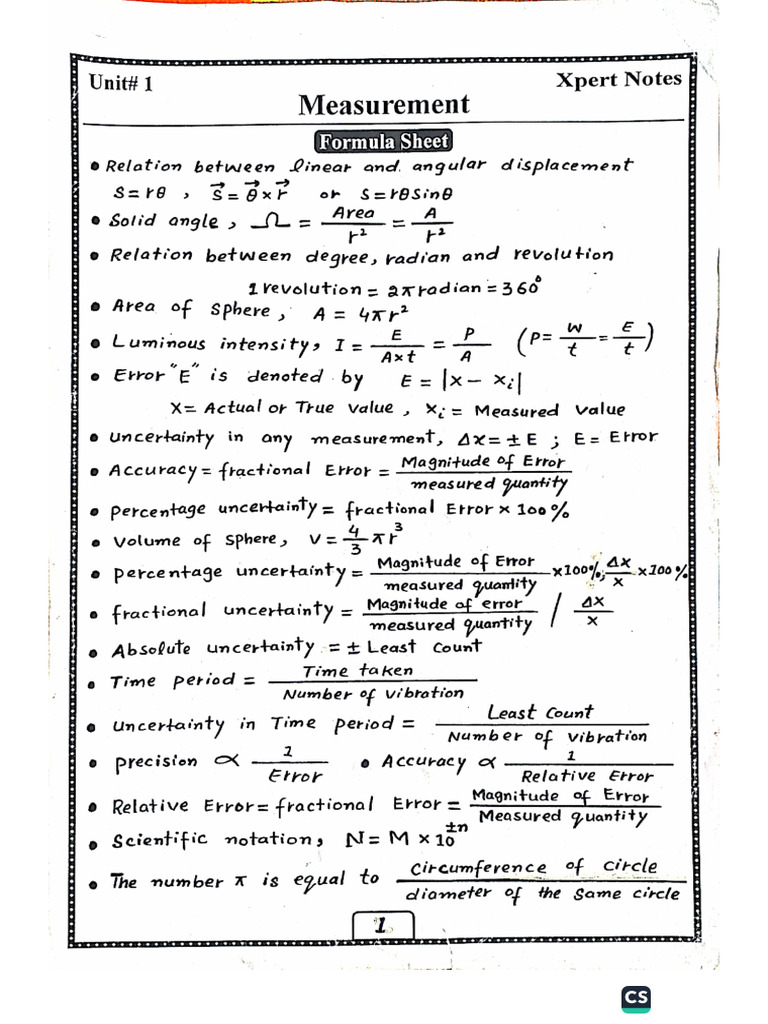 Unit# 1
Xpert Notes
Measurement
Formula Sheet
• Relation between linear and angular displacement
S=rθ , S⃗ = θ⃗ × r⃗ or S=rθSinθ
• Solid angle, Ω = Area/r² = A/r²
• Relation between degree, radian and revolution
1 revolution = 2π radian = 360°
• Area of Sphere, A = 4πr²
• Luminous intensity, I = E/A×t = P/A (P= W/t = E/t)
• Error "E" is denoted by E = |x - xᵢ|
X= Actual or True value, xᵢ = Measured value
• uncertainty in any measurement, Δx = ±E ; E = Error
• Accuracy = fractional Error = Magnitude of Error/measured quantity
• percentage uncertainty = fractional Error × 100%
• volume of sphere, V = 4/3 πr³
• percentage uncertainty = Magnitude of Error/measured quantity ×100%, Δx/x ×100%
• fractional uncertainty = Magnitude of error/measured quantity / Δx/x
• Absolute uncertainty = ± Least Count
• Time period = Time taken/Number of vibration
• uncertainty in Time period = Least Count/Number of vibration
• precision ∝ 1/Error • Accuracy ∝ 1/Relative Error
• Relative Error = fractional Error = Magnitude of Error/Measured quantity
• Scientific notation, N = M × 10^±n
• The number π is equal to circumference of circle/diameter of the same circle
1
CS